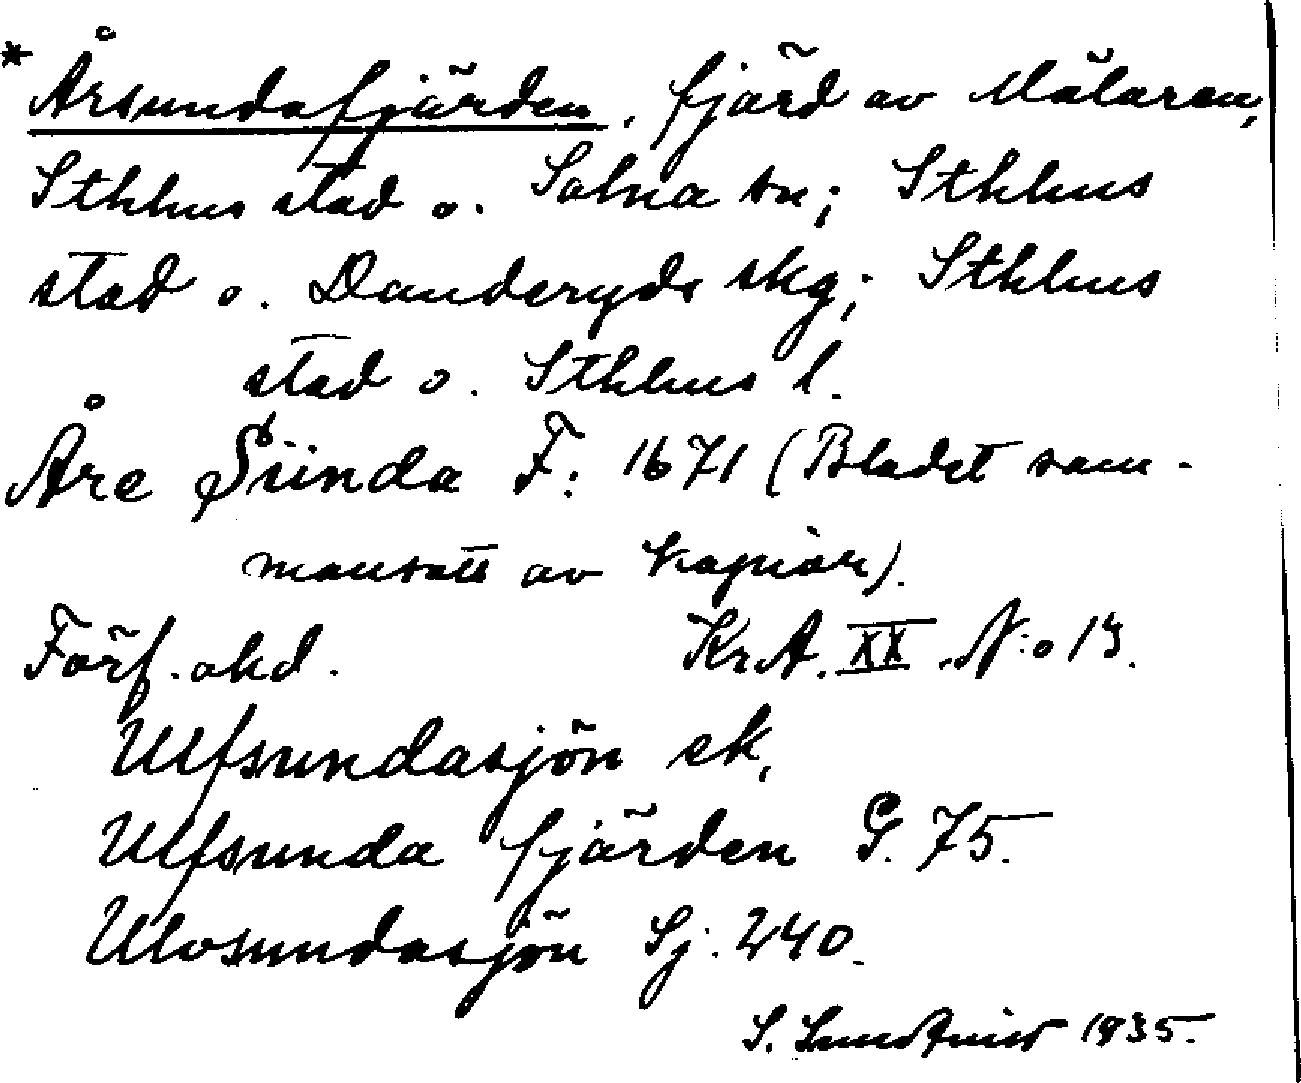 * Årsundafjärden, fjärd av Mälaren,
Sthlms stad o. Solna sn; Sthlms
stad o. Danderyds skg; Sthlms
stad o. Sthlms l.
Åre Sünda F: 1671 (Bladet sam-
mansatt av kopior).
Förf. okd. KrA. XX. N:o 13.
Ulfsundasjön ek,
Ulfsunda fjärden G. 75.
Ulvsundasjön Sj. 240.
S. Lundqvist 1935.